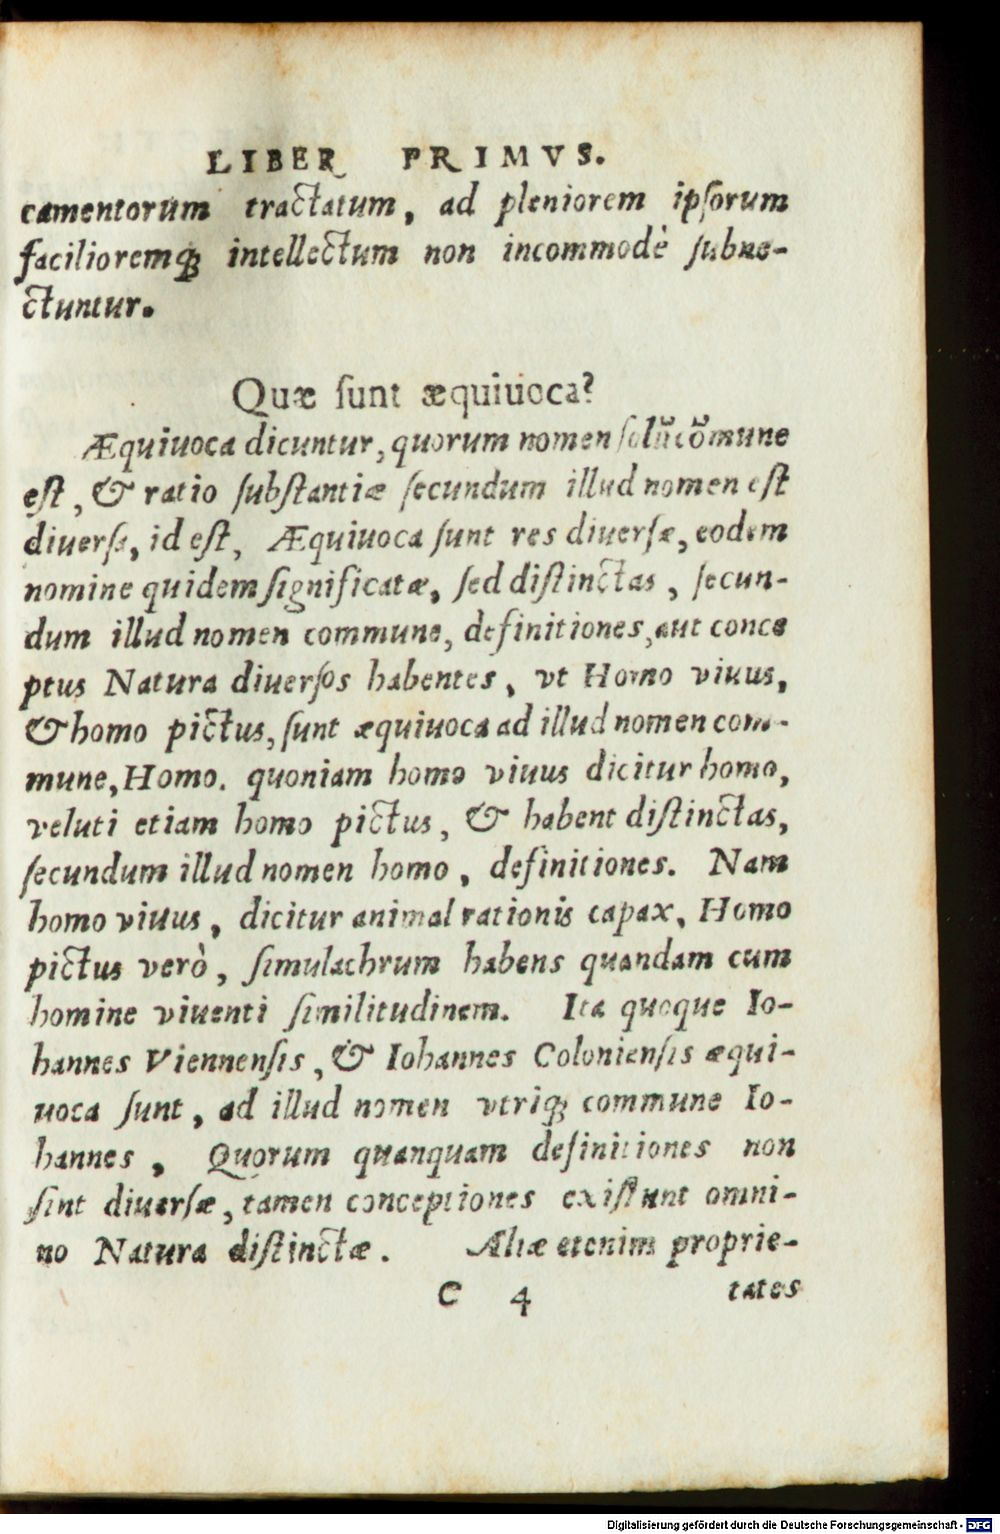 LIBER PRIMVS.
camentorum tractatum, ad pleniorem ipſorum
facilioremq́; intellectum non incommodè ſubne-
ctuntur.
Quæ ſunt æquiuoca?
Æquiuoca dicuntur, quorum nomen ſolũ cõmune
eſt, & ratio ſubſtantiæ ſecundum illud nomen eſt
diuerſa, id eſt, Æquiuoca ſunt res diuerſæ, eodem
nomine quidem ſignificatæ, ſed diſtinctas, ſecun-
dum illud nomen commune, definitiones, aut conce
ptus Natura diuerſos habentes, vt Homo viuus,
& homo pictus, ſunt æquiuoca ad illud nomen com-
mune, Homo. quoniam homo viuus dicitur homo,
veluti etiam homo pictus, & habent diſtinctas,
ſecundum illud nomen homo, definitiones. Nam
homo viuus, dicitur animal rationis capax, Homo
pictus verò, ſimulachrum habens quandam cum
homine viuenti ſimilitudinem. Ita quoque Io-
hannes Viennenſis, & Iohannes Colonienſis æqui-
uoca ſunt, ad illud nomen vtriq́; commune Io-
hannes, Quorum quanquam definitiones non
ſint diuerſæ, tamen conceptiones exiſtunt omni-
no Natura diſtinctæ. Aliæ etenim proprie-
C 4 tates
Digitalisierung gefördert durch die Deutsche Forschungsgemeinschaft - DFG